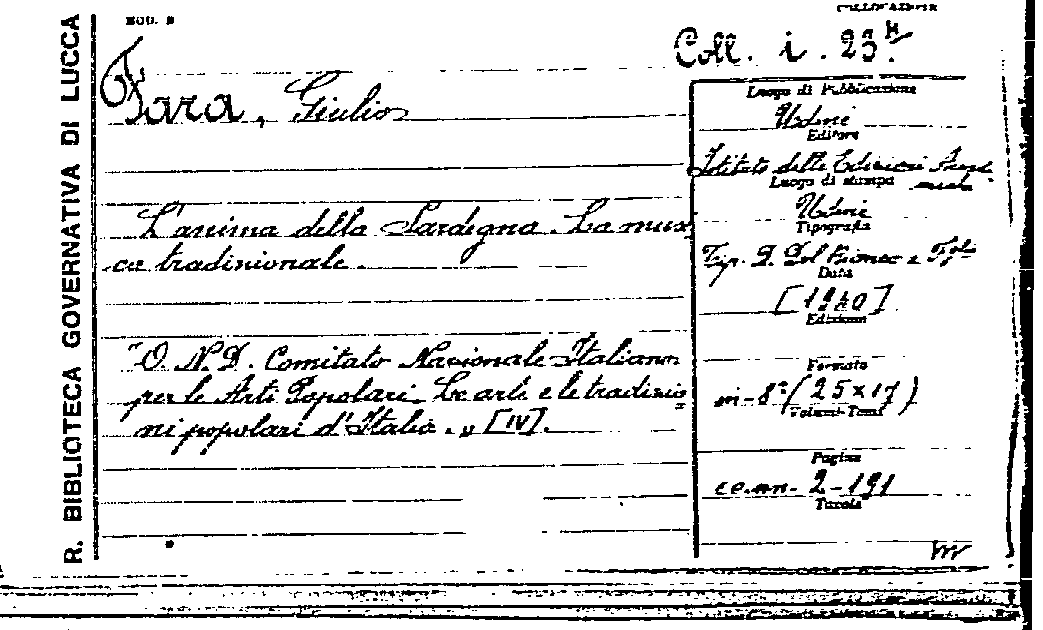 MOD. B
COLLOCAZIONE
Coll. i. 23.
R. BIBLIOTECA GOVERNATIVA DI LUCCA
Fara, Giulio
L'anima della Sardegna. La musi
ca tradizionale.
"O. N. D. Comitato Nazionale Italiano
per le Arti Popolari. Le arti e le tradizio
ni popolari d'Italia." [IV].
Luogo di Pubblicazione
Udine
Editore
Istituto delle Edizioni
Luogo di stampa
Udine
Tipografia
Tip. D. Del Bianco e Figli
Data
[1940]
Edizione
Formato
in-8° (25x17)
Volumi-Tomi
Pagine
cc.nn. 2-191
Tavole